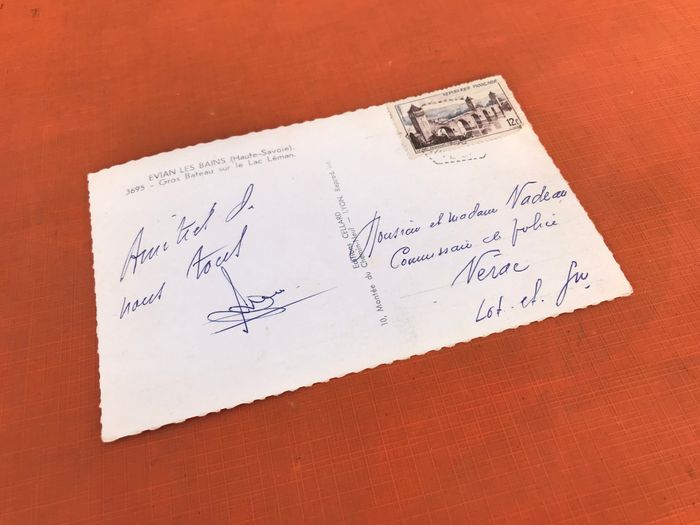 EVIAN LES BAINS (Haute-Savoie).
3695 - Gros Bateau sur le Lac Léman.
Amitiés de
nous tous
Editions CELLARD
10, Montée du Chemin-Neuf - LYON
REPUBLIQUE FRANÇAISE
12F
Monsieur et madame Nadeau
Commissaire de police
Nérac
Lot. et. Gne